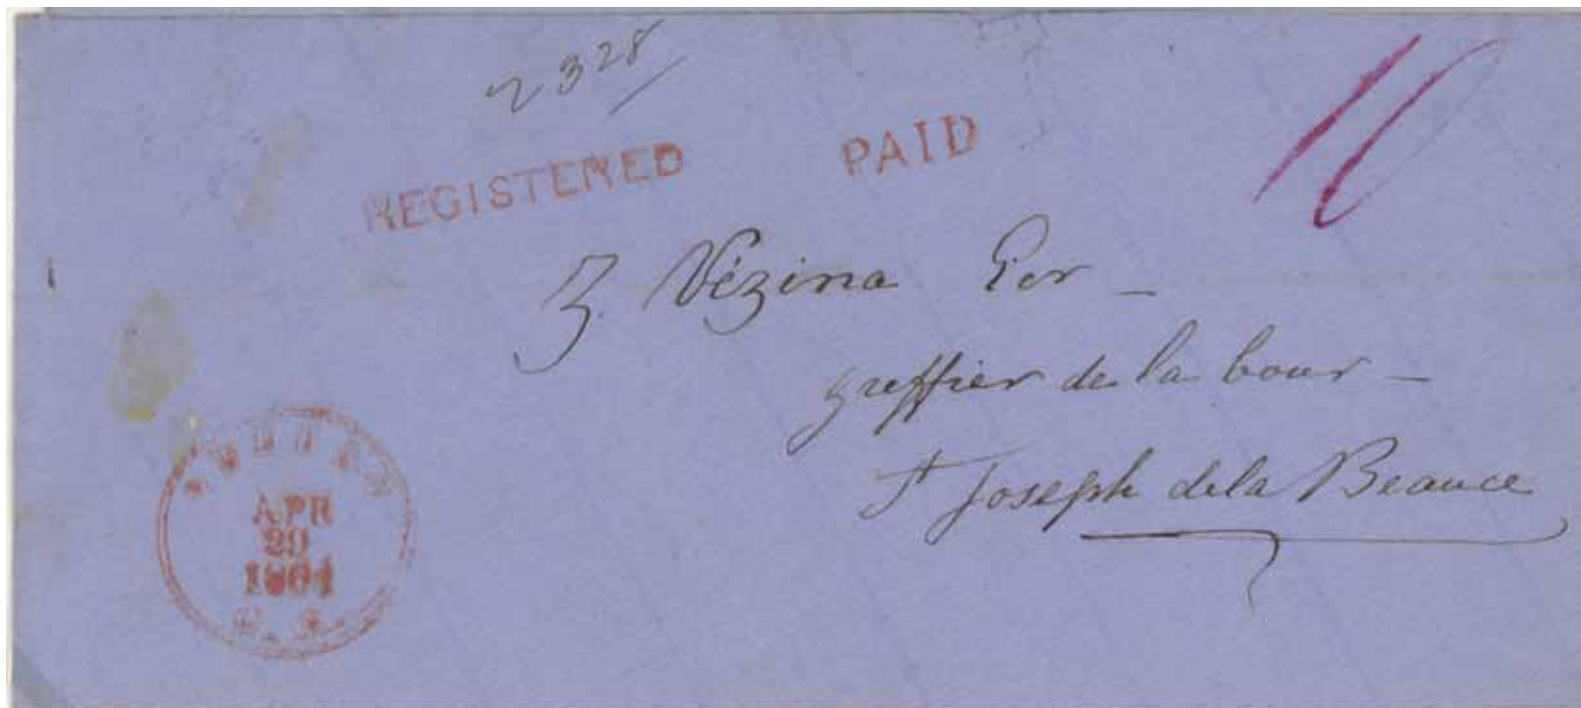 2328
REGISTERED PAID
Z. Vézina Ecr
greffier de la Cour
St Joseph de la Beauce
QUEBEC
APR
29
1864